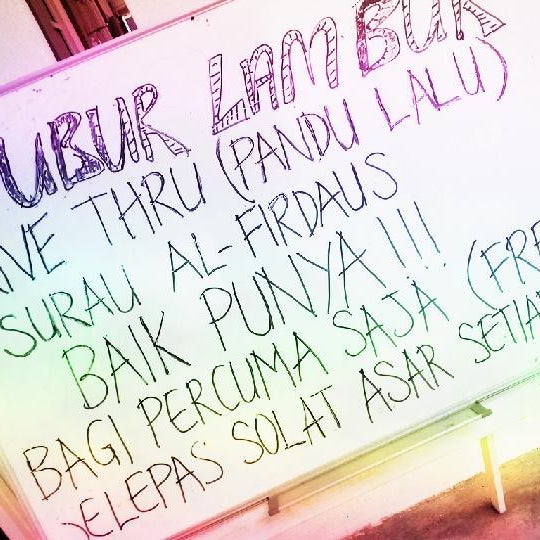 UBUR LAMBUK
IVE THRU (PANDU LALU)
SURAU AL-FIRDAUS
BAIK PUNYA!!!
BAGI PERCUMA SAJA (FRE
SELEPAS SOLAT ASAR SETIA